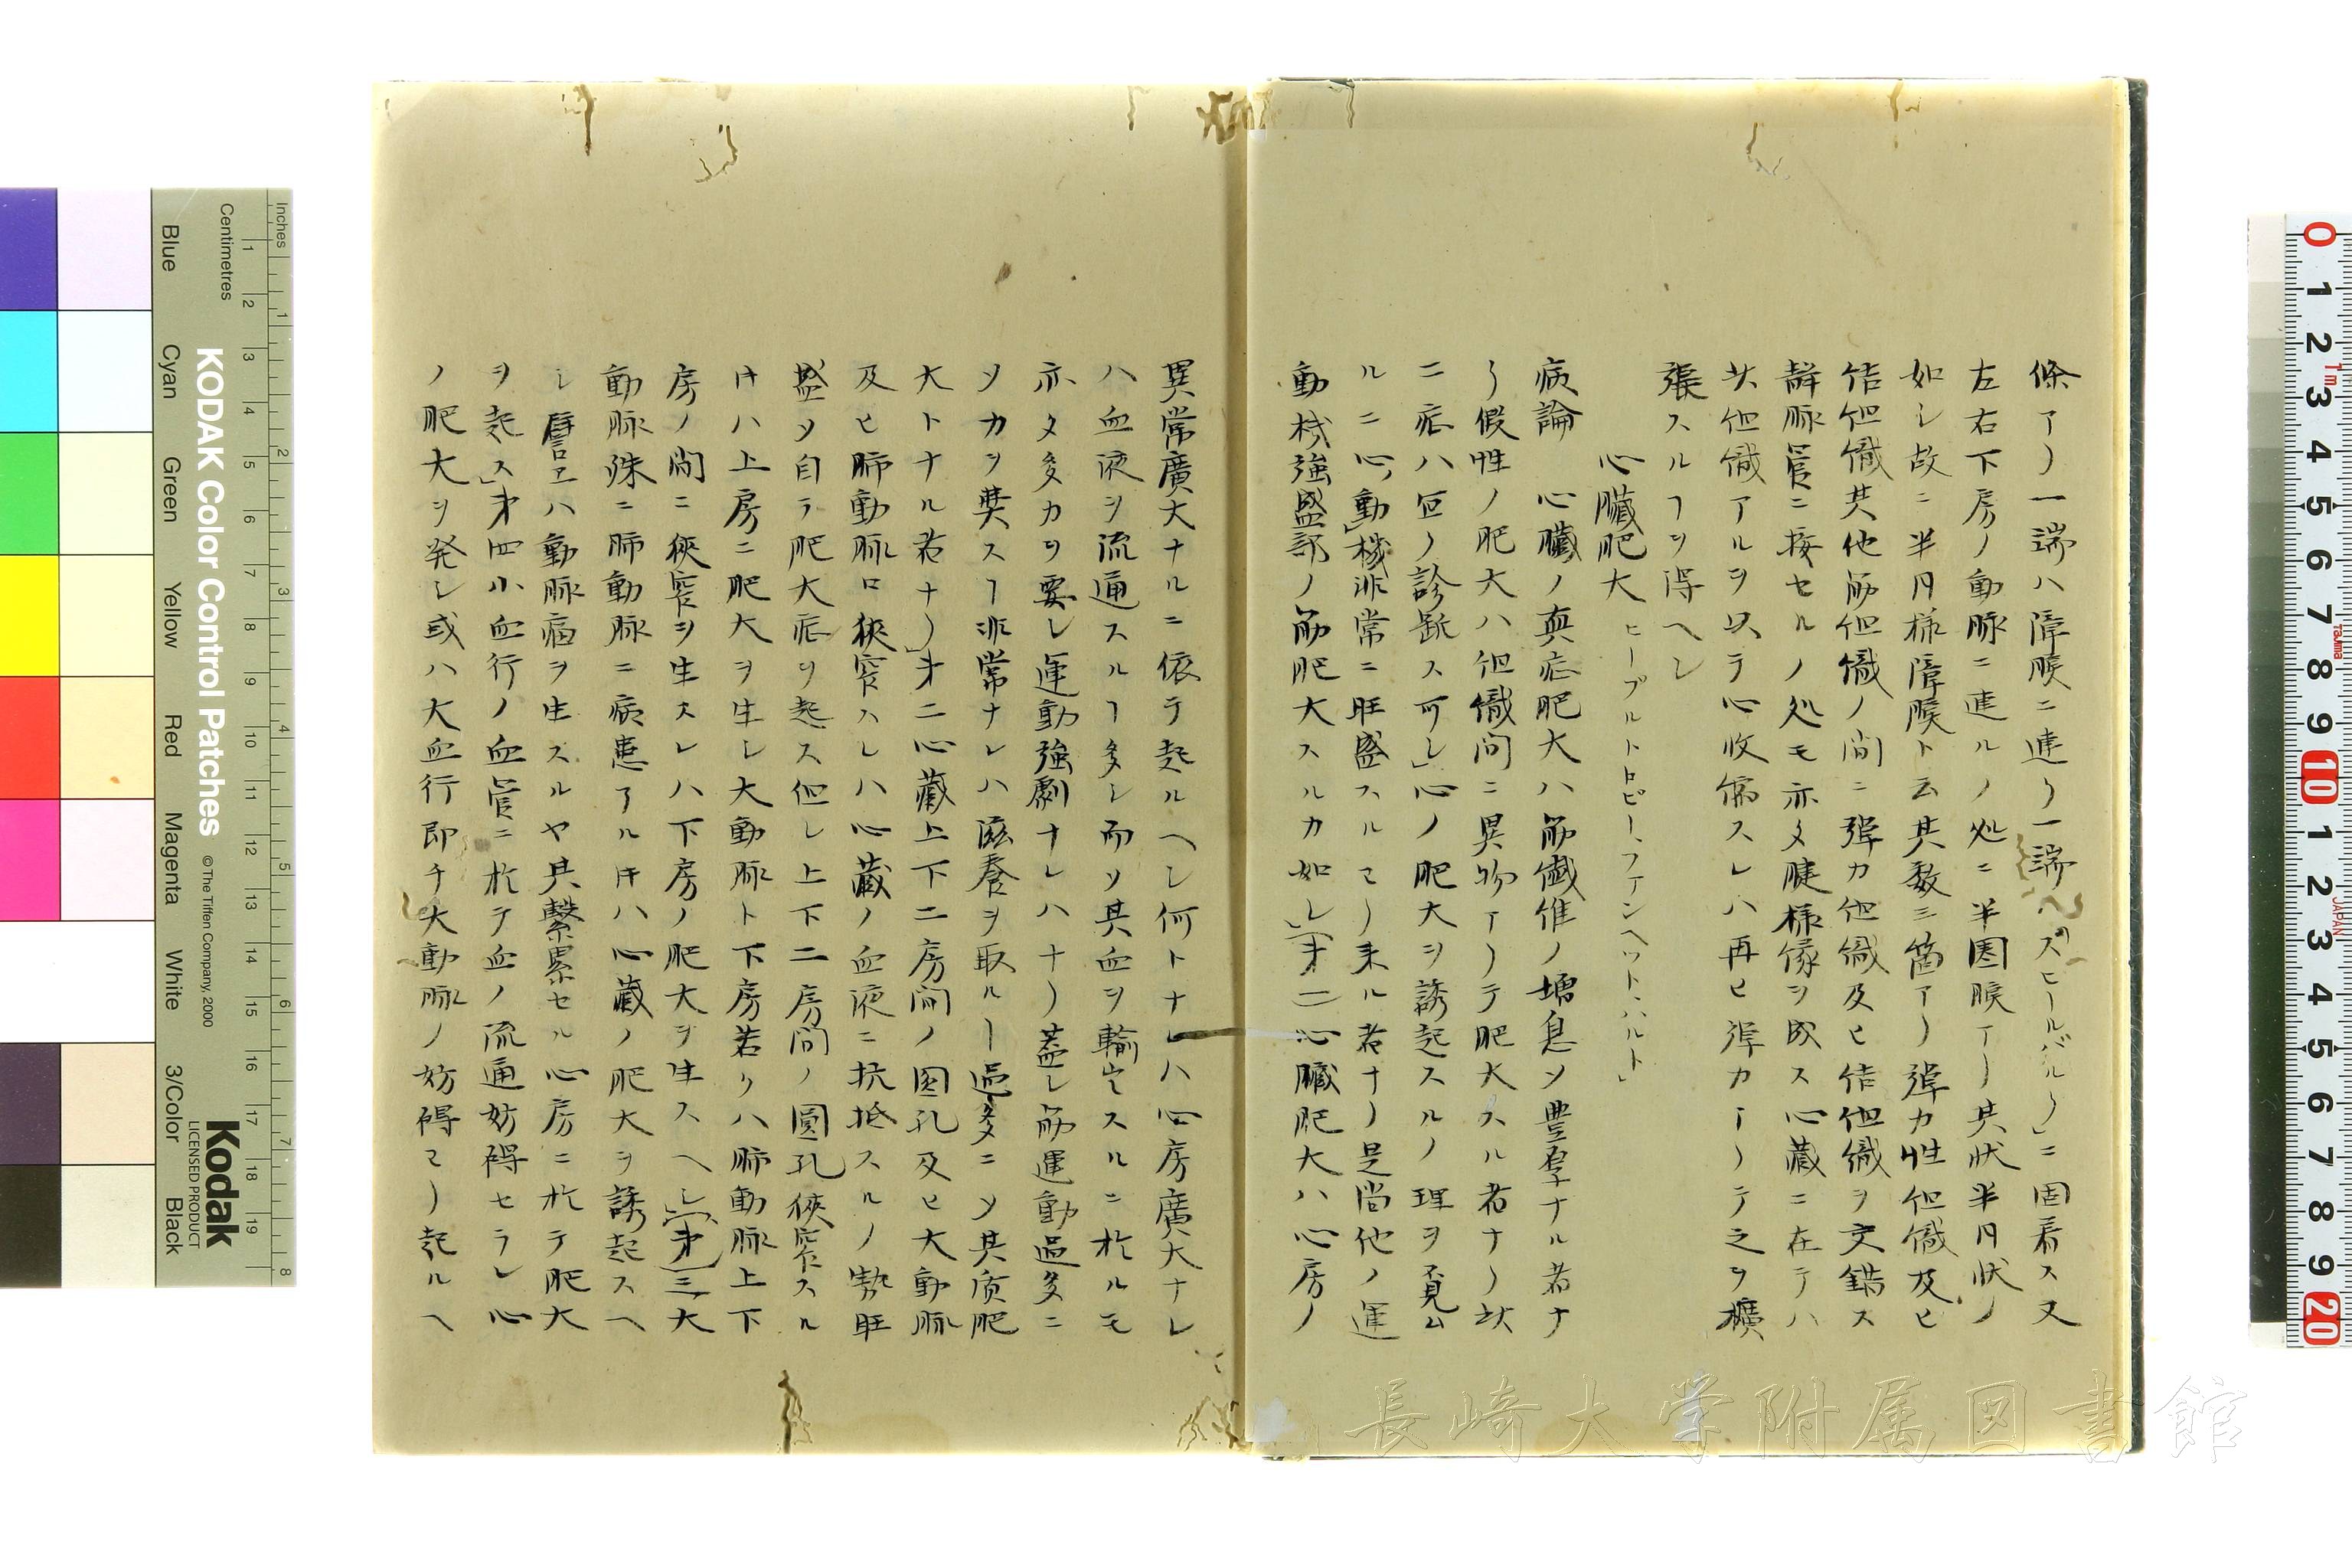 條アリ一端ハ障膜ニ連リ一端ハ「スピールバルク」ニ固着ス又
左右下房ノ動脉ニ進ルノ処ニ半圏膜アリ其状半月状ノ
如シ故ニ半月様障膜ト云其数三箇アリ弾力性但織及ヒ
結但織其他筋但織ノ間ニ弾力但織及ヒ結但織ヲ交錯ス
静脉管ニ接セルノ処モ亦タ腱様條ヲ成ス心蔵ニ在テハ
此但織アルヲ以テ心收縮スレハ再ヒ弾力アリテ之ヲ擴
張スルヿヲ得ヘシ
心臓肥大 ヒーブルトロピー、ファンヘット、ハルト」
病論 心臓ノ真症肥大ハ筋纎維ノ増息シ豊厚ナル者ナ
リ假性ノ肥大ハ但織間ニ異物アリテ肥大スル者ナリ此
二症ハ宜ノ診断ス可シ」心ノ肥大ヲ誘起スルノ理ヲ覓ム
ルニ心動機非常ニ旺盛スルヨリ来ル者ナリ是尚他ノ運
動機強盛部ノ筋肥大スルカ如シ」(才一)心臓肥大ハ心房ノ
異常廣大ナルニ依テ起ルヘシ何トナレハ心房廣大ナレ
ハ血液ヲ流通スルヿ多シ而シ其血ヲ輸出スルニ於ルモ
亦タ多力ヲ要シ運動強劇ナレハナリ蓋シ筋運動過多ニ
シカヲ奘スヿ非常ナレハ滋養ヲ取ルヿ過多ニシ其质肥
大トナル者ナリ」才二心蔵上下二房間ノ圓孔及ヒ大動脉
及ヒ肺動脉口狹窄スレハ心蔵ノ血液ニ抗抵スルノ勢旺
盛シ自テ肥大症ヲ起ス但シ上下二房間ノ圓孔狹窄スル
ㇳキハ上房ニ肥大ヲ生シ大動脉ト下房若クハ肺動脉上下
房ノ間ニ狹窄ヲ生スレハ下房ノ肥大ヲ生スヘシ」(才三)大
動脉殊ニ肺動脉ニ病患アルㇳキハ心蔵ノ肥大ヲ誘起スヘ
シ譬ヱハ動脉瘤ヲ生スルヤ其繋累セル心房ニ於テ肥大
ヲ起ス」才四小血行ノ血管ニ於テ血ノ流通妨碍セラレ心
ノ肥大ヲ発シ或ハ大血行即チ大動脉ノ妨碍ヨリ起ルヘ
長崎大学附属図書館
KODAK Color Control Patches
© The Tiffen Company, 2000
Kodak
LICENSED PRODUCT
Inches
Centimetres
Blue Cyan Green Yellow Red Magenta White 3/Color Black